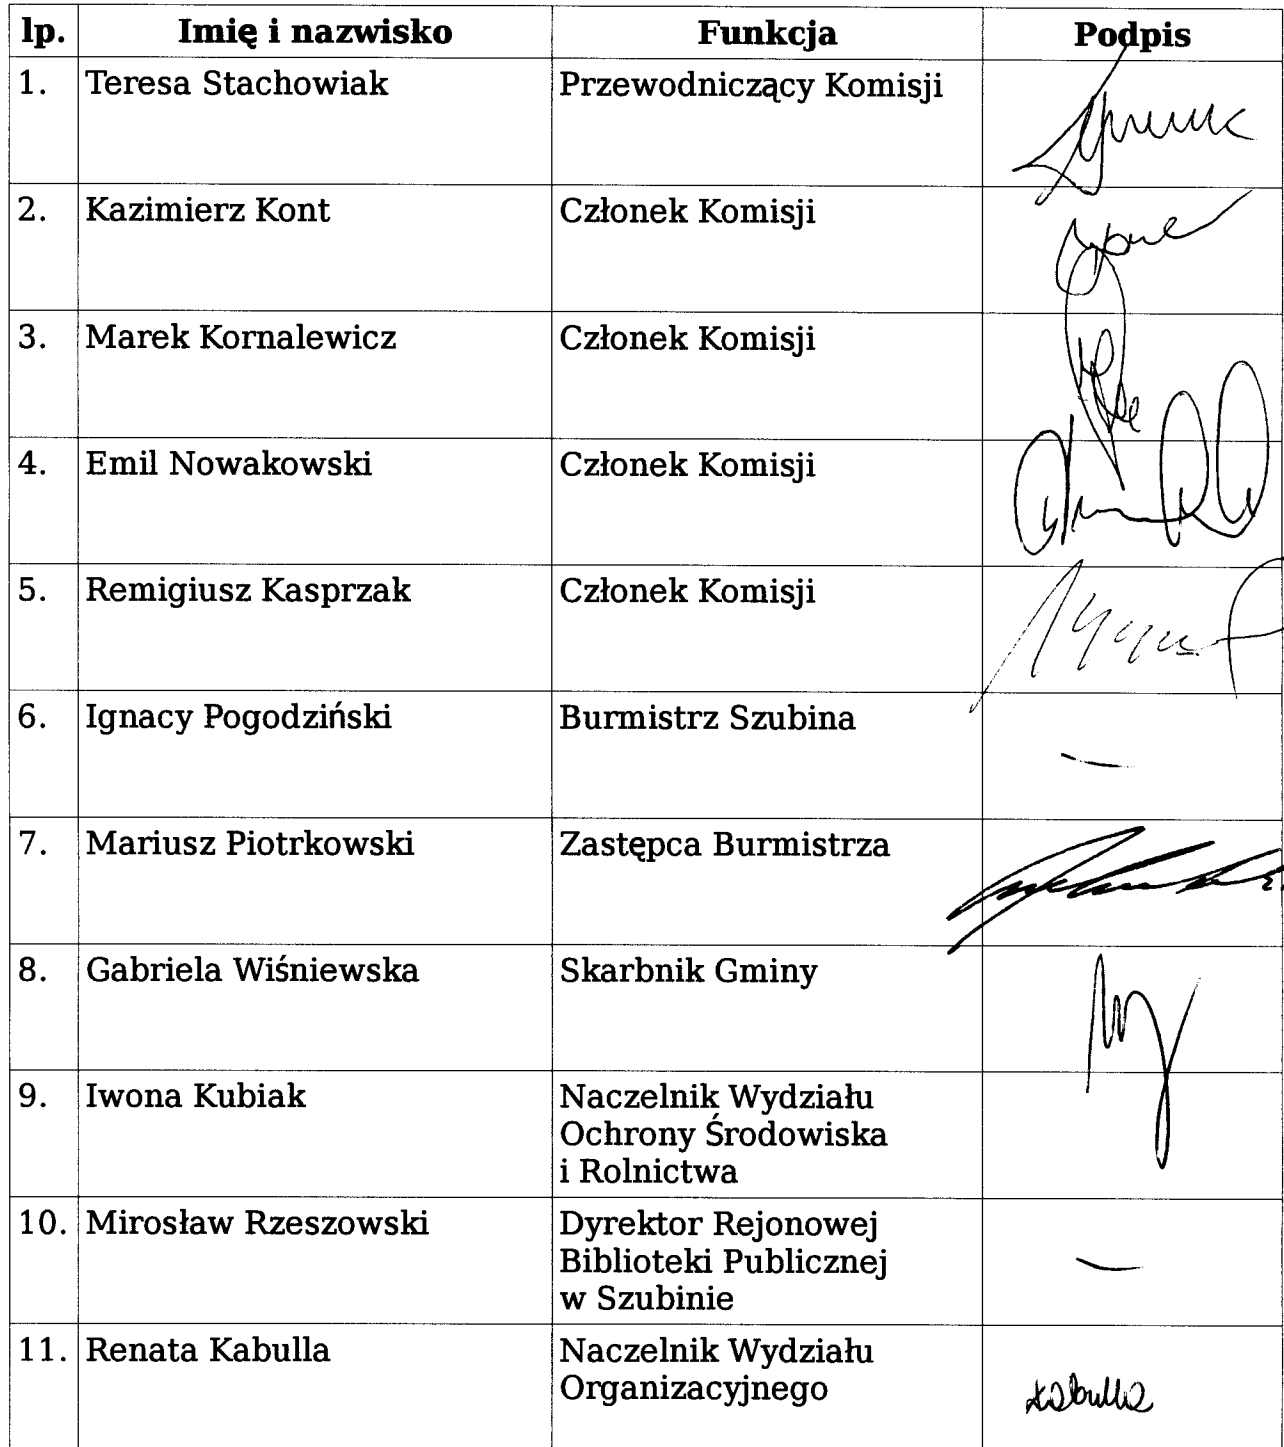 lp. Imię i nazwisko Funkcja Podpis
1. Teresa Stachowiak Przewodniczący Komisji
2. Kazimierz Kont Członek Komisji
3. Marek Kornalewicz Członek Komisji
4. Emil Nowakowski Członek Komisji
5. Remigiusz Kasprzak Członek Komisji
6. Ignacy Pogodziński Burmistrz Szubina
—
7. Mariusz Piotrkowski Zastępca Burmistrza
8. Gabriela Wiśniewska Skarbnik Gminy
9. Iwona Kubiak Naczelnik Wydziału
Ochrony Środowiska
i Rolnictwa
10. Mirosław Rzeszowski Dyrektor Rejonowej
Biblioteki Publicznej
—
w Szubinie
11. Renata Kabulla Naczelnik Wydziału
Organizacyjnego
Kabulla